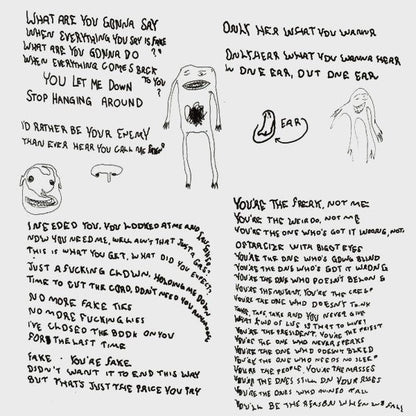 WHAT ARE YOU GONNA SAY
WHEN EVERYTHING YOU SAY IS FAKE
WHAT ARE YOU GONNA DO ??
WHEN EVERYTHING COMES BACK
TO YOU ?
YOU LET ME DOWN
STOP HANGING AROUND
I'D RATHER BE YOUR ENEMY
THAN EVER HEAR YOU CALL ME
ONLY HER WHAT YOU WANNA
ONLY HEAR WHAT YOU WANNA HEAR
IN ONE EAR, OUT ONE EAR
EAR
I NEEDED YOU, YOU LOOKED AT ME AND
NOW YOU NEED ME, WELL AIN'T THAT JUST A
THIS IS WHAT YOU GET, WHAT DID YOU EXPECT,
JUST A FUCKING CLOWN, HOLDING ME DOWN
TIME TO CUT THE CORD, DON'T NEED YOU
NO MORE FAKE TIES
NO MORE FUCKING LIES
I'VE CLOSED THE BOOK ON YOU
FOR THE LAST TIME
FAKE · YOU'RE FAKE
DIDN'T WANT IT TO END THIS WAY
BUT THAT'S JUST THE PRICE YOU PAY
YOU'RE THE FREAK, NOT ME
YOU'RE THE WEIRDO, NOT ME
YOU'RE THE ONE WHO'S GOT IT WRONG, NOT
WITH BIGOT EYES
YOU'RE THE ONE WHO'S GOING BLIND
YOU'RE THE ONE WHO'S GOT IT WRONG
YOU'RE THE ONE WHO DOESN'T BELONG
YOU'RE THE MUTANT, YOU'RE THE CREEP
YOU'RE THE ONE WHO DOESN'T THINK
TAKE, TAKE AND YOU NEVER GIVE
WHAT KIND OF LIFE IS THAT TO LIVE?
YOU'RE THE PRESIDENT, YOU'RE THE PRIEST
YOU'RE THE ONE WHO NEVER SPEAKS
YOU'RE THE ONE WHO DOESN'T BLEED
YOU'RE THE ONE WHO NEEDS NO SLEEP
YOU'RE THE PEOPLE, YOU'RE THE MASSES
YOU'RE THE ONES STILL ON YOUR
YOU'RE THE ONES WHO RUINED IT ALL
YOU'LL BE THE REASON WHEN WE FALL